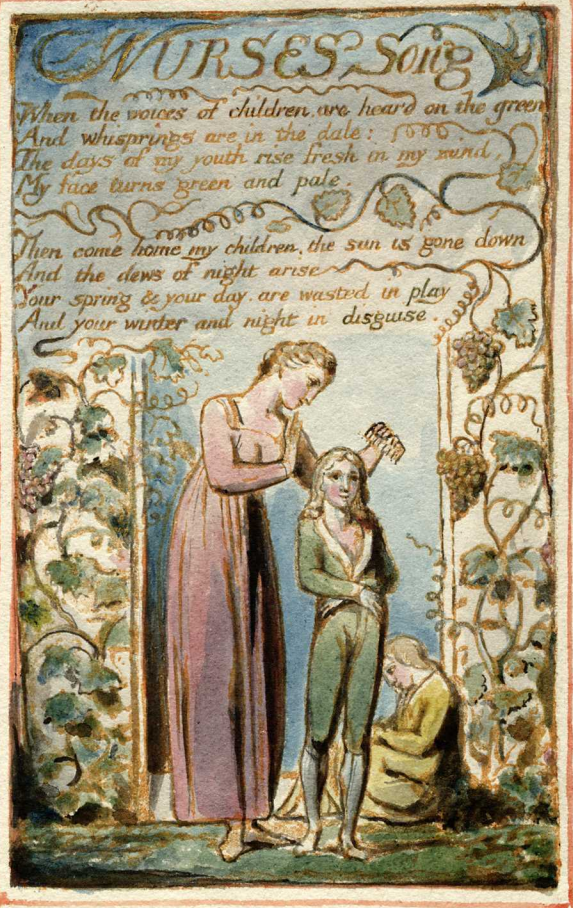 NURSES Song
When the voices of children, are heard on the green
And whisprings are in the dale:
The days of my youth rise fresh in my mind,
My face turns green and pale.
Then come home my children, the sun is gone down
And the dews of night arise
Your spring & your day, are wasted in play
And your winter and night in disguise.